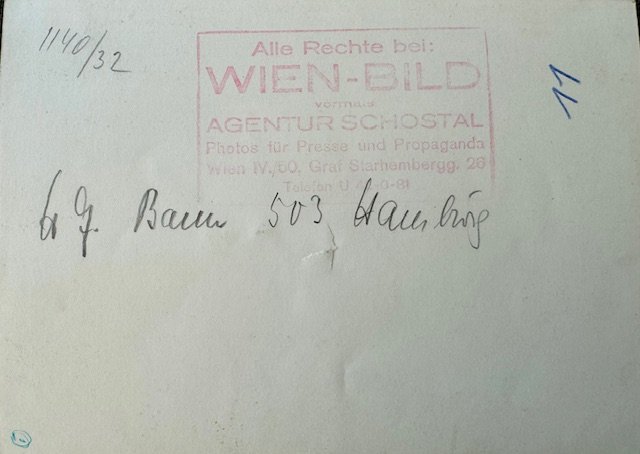 1140/32
Alle Rechte bei:
WIEN-BILD
vormals
AGENTUR SCHOSTAL
Photos für Presse und Propaganda
Wien IV./50, Graf Starhembergg. 26
Telefon U
11
503 Hamburg